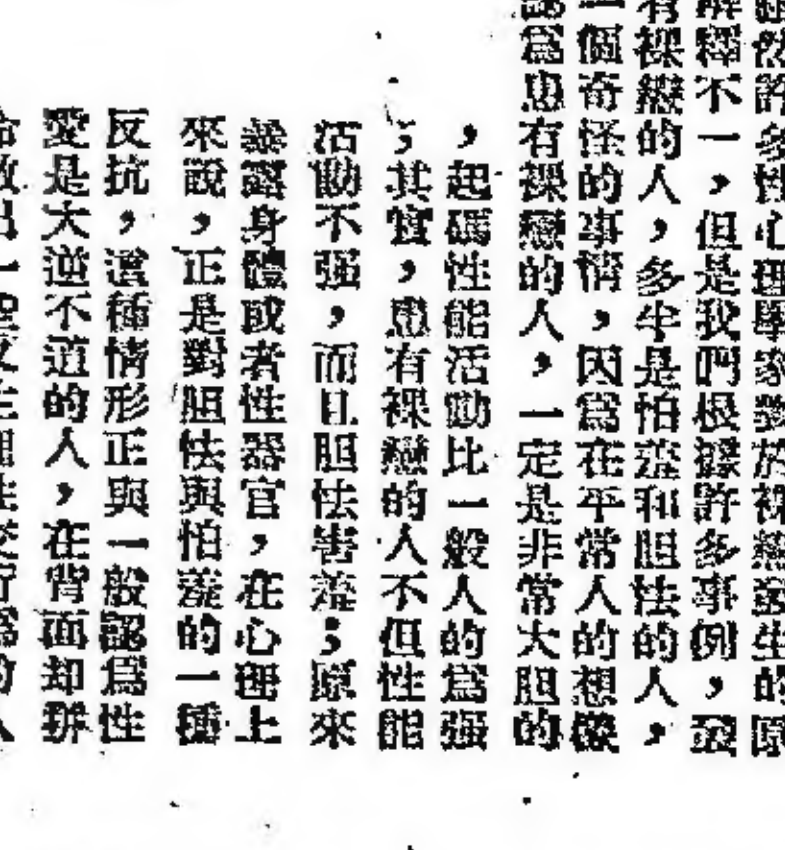 雖然許多性心理學家對於裸戀發生的原
解釋不一，但是我們根據許多事例，發
有裸戀的人，多半是怕羞和胆怯的人，
一個奇怪的事情，因爲在平常人的想像
認爲患有裸戀的人，一定是非常大胆的
，起碼性能活動比一般人的爲强
；其實，患有裸戀的人不但性能
活動不强，而且胆怯害羞；原來
暴露身體或者性器官，在心理上
來說，正是對胆怯與怕羞的一種
反抗，這種情形正與一般認爲性
愛是大逆不道的人，在背面却拼
出一 性交行爲的人